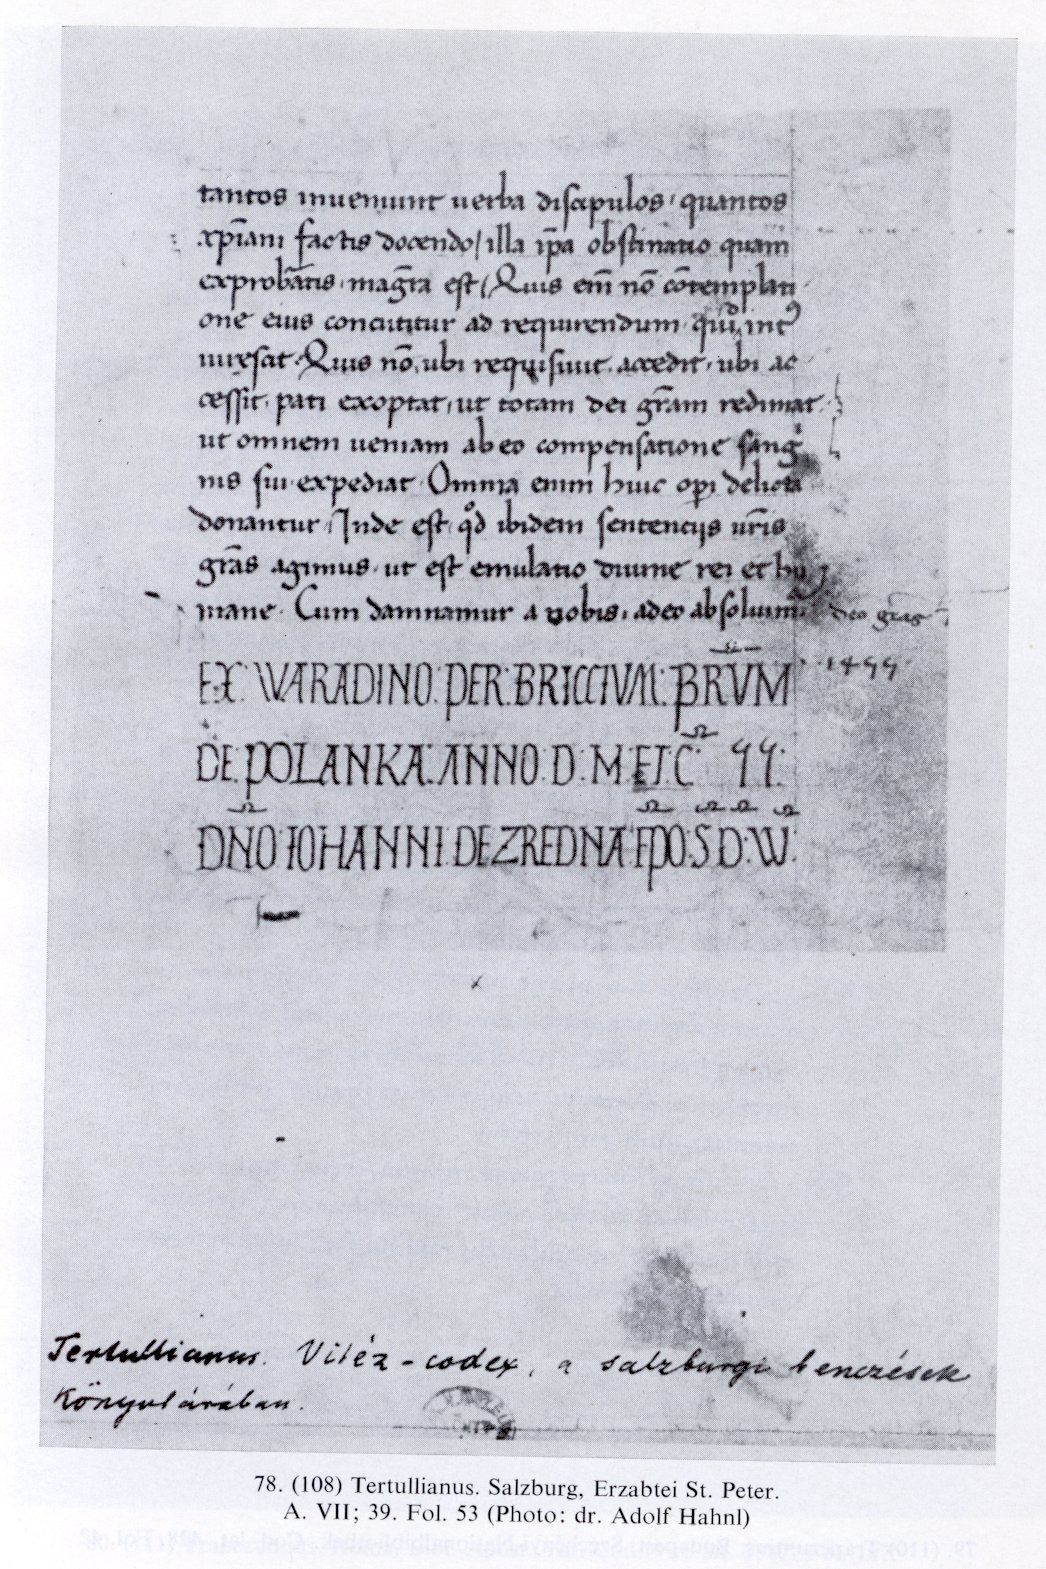 tantos inueniunt uerba discipulos, quantos
xp̄iani factis docendo, illa ip̄a obstinatio quam
exprobratis, magr̄a est, Quis em̄ nō cōtemplati
one eius concutitur ad requirendum, quid int
Quis nō, ubi requisiuit, accedit, ubi ac
cessit, pati exoptat, ut totam dei gr̄am redimat,
ut omnem ueniam ab eo compensatione sang
nis sui expediat, Omnia enim huic op̄i delicta
donantur, Inde est, qd̊ ibidem sententijs ur̄is
gr̄as agimus, ut est emulatio diuine rei et hu
mane. Cum damnamur a uobis, a deo absoluim᷒. deo gr̄as
EX: WARADINO: PER: BRICCIUM: PR̄VM 1455
DE: POLANKA: ANNO: D: M: ET: C̄: 55:
DN̄O: IOHANNI: DE ZREDNA: EP̄O: S̄: D̄: W̄.
Tertullianus. Vitéz-codex, a salzburgi benczések
Könyvtárában.
78. (108) Tertullianus. Salzburg, Erzabtei St. Peter.
A. VII; 39. Fol. 53 (Photo: dr. Adolf Hahnl)